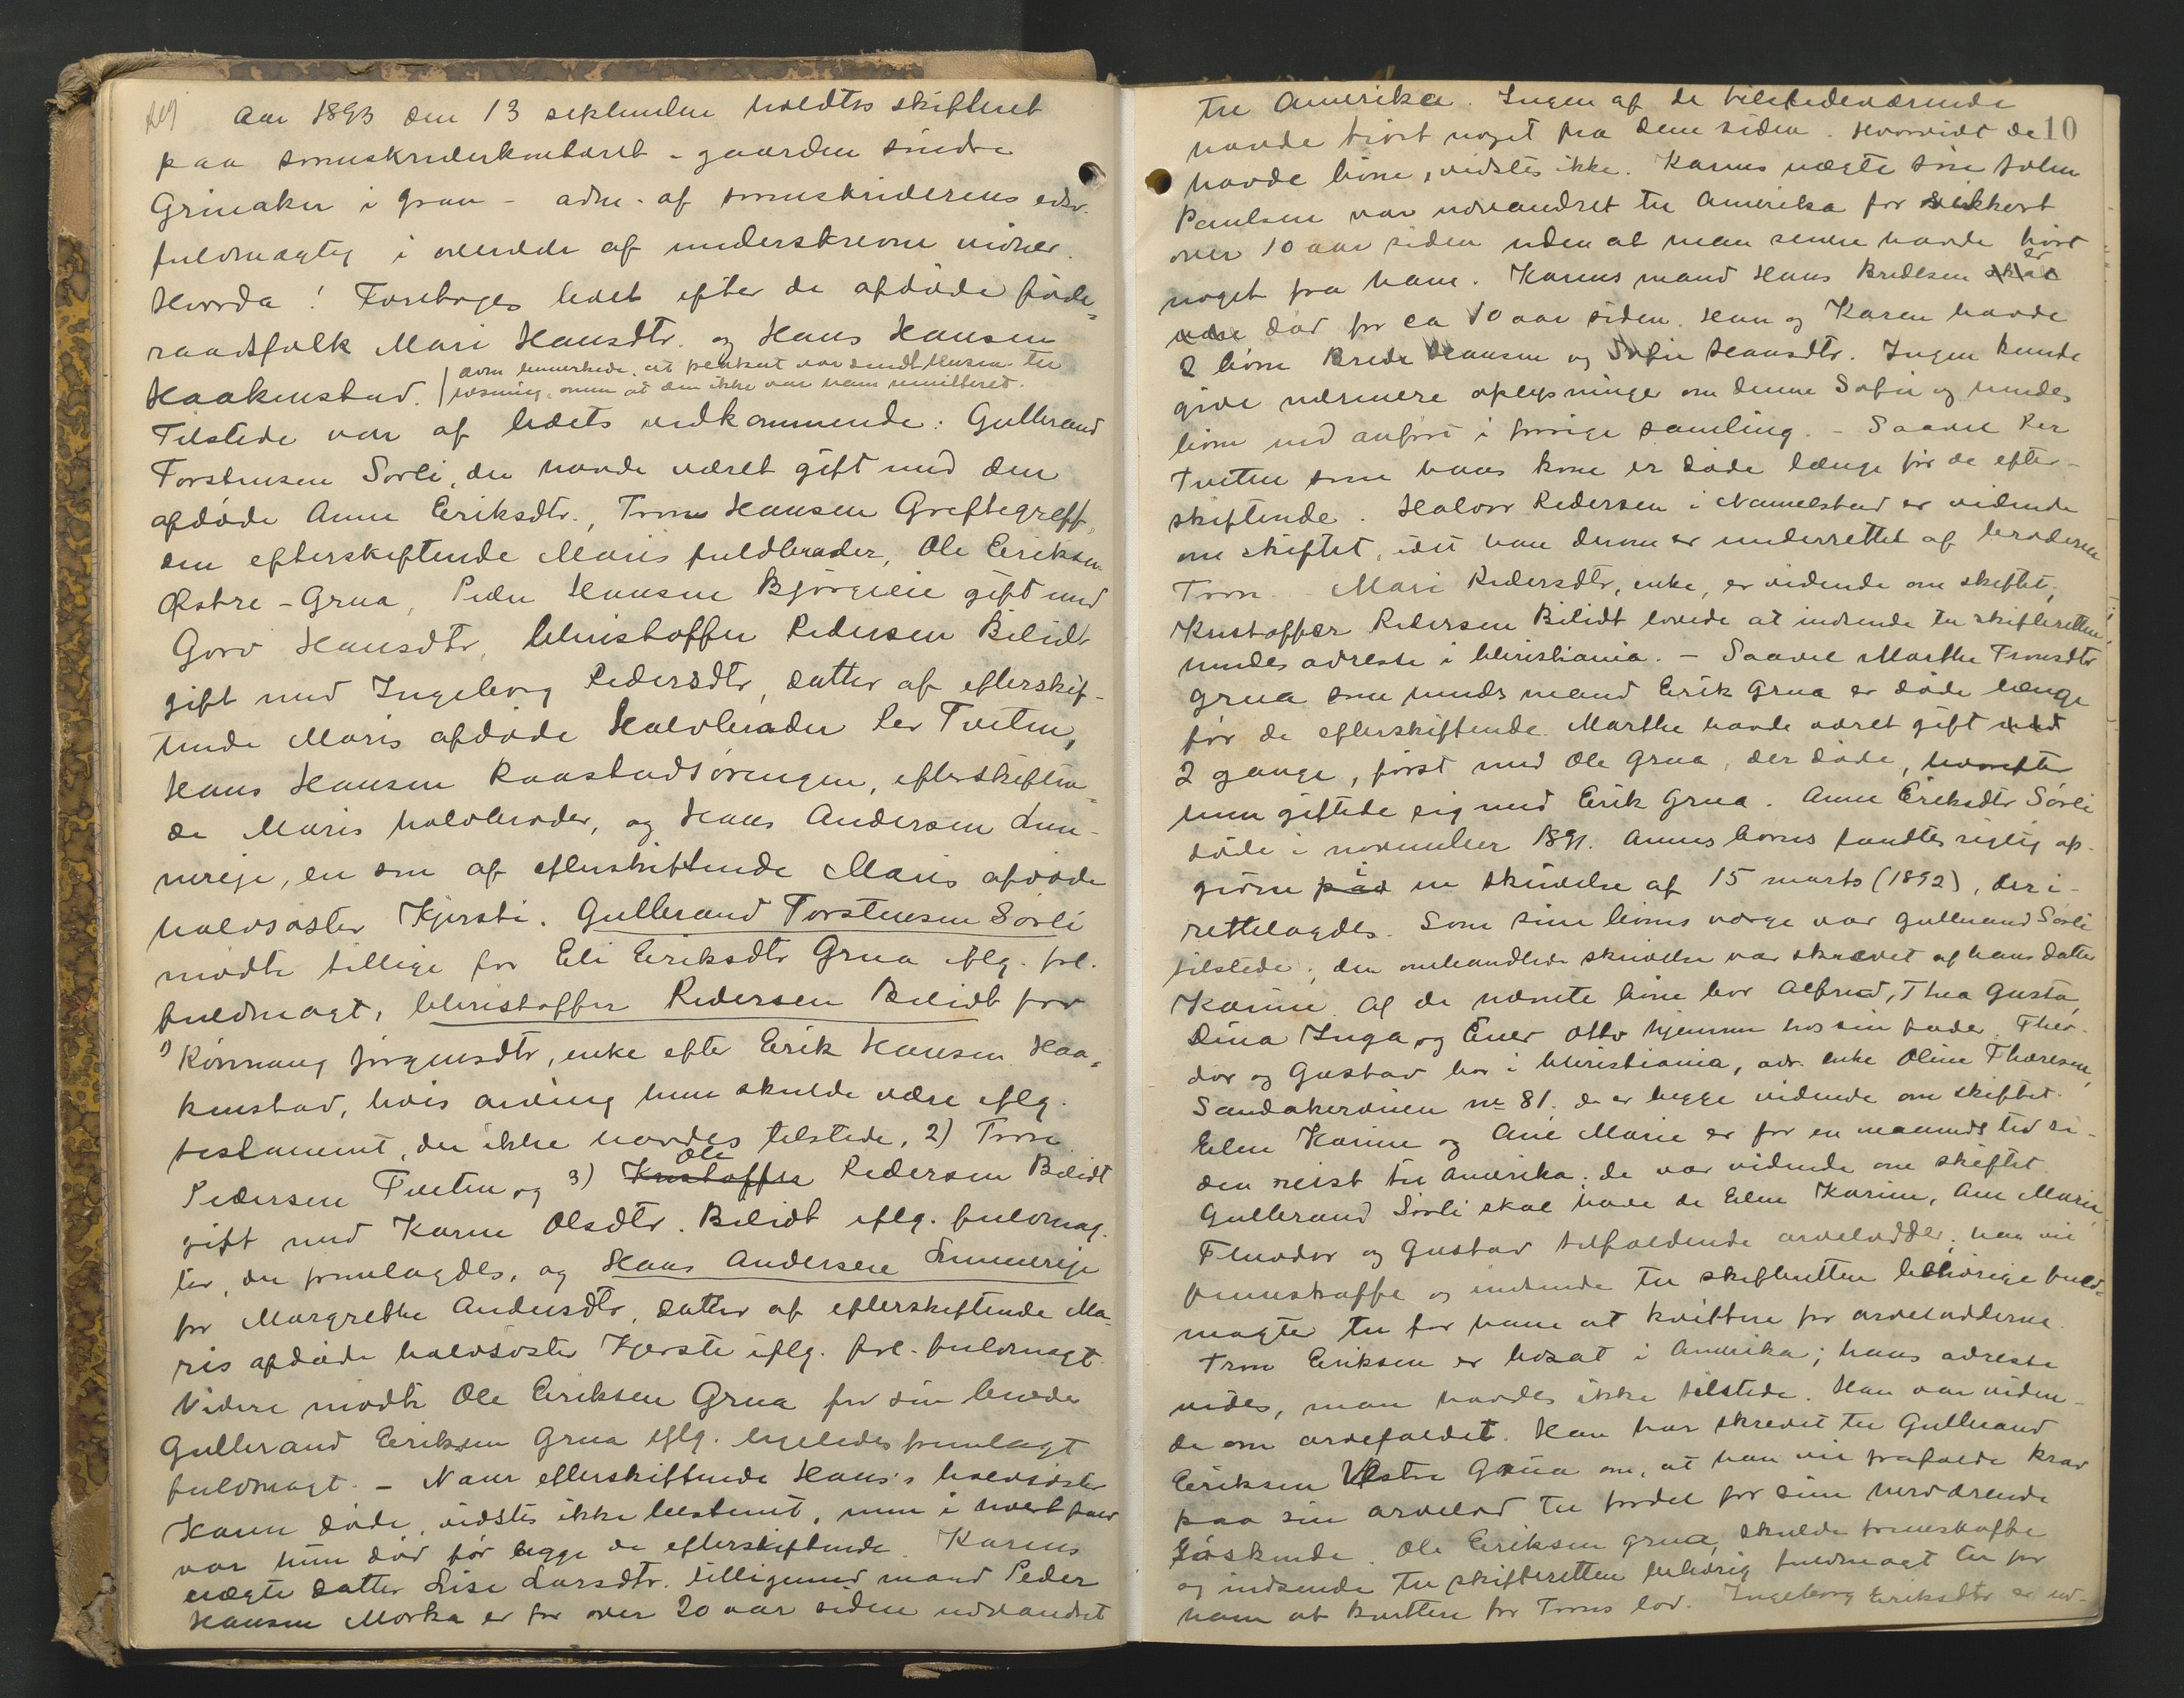 Aar 1893 den 13 september holdtes skifteret
paa sorenskriverkontoret - gaarden søndre
Grinaker i Gran - adm. af sorenskriverens edsv.
fuldmægtig i overvær af underskrevne vidner.
Hvorda! Foretoges boet efter de afdøde føde-
raadsfolk Mari Hansdtr. og Hans Hansen
Haakenstad.
adm. bemerkede, at var sendt til
løsning, men at den ikke var ham remitteret.
Tilstede var af boets vedkommende: Gulbrand
Torstensen Sørli, der havde været gift med den
afdøde Anne Eriksdtr., Tron Hansen Greftegreff,
den efterskiftende Maris fuldbroder, Ole Eriksen
Østre-Grua, Peder Hansen gift med
Goro Hansdtr, Christoffer Pedersen Bilidt
gift med Ingeborg Pedersdtr, datter af efterskif-
tende Maris afdøde Halvbroder Per Tveten,
Hans Hansen Raastadsøvengen, efterskiften-
de Maris halvbroder, og Hans Andersen Lun-
nereje, en søn af efterskiftende Maris afdøde
halvsøster Kjersti. Gulbrand Torstensen Sørli
mødte tillige for Eli Eriksdtr Grua iflg. frl.
fuldmagt, Christoffer Pedersen Bilidt for
1) Rønnaug Jørgensdtr, enke efter Erik Hansen Haa-
kenstad, hvis arving hun skulde være iflg.
testament, der ikke havdes tilstede, 2) Tron
Pedersen Tveten og 3) Kristoffer Ole Pedersen Bilidt
gift med Karen Olsdtr. Bilidt iflg. fuldmag-
ter, der fremlagdes, og Hans Andersen Lunnereje
for Margrethe Andersdtr, datter af efterskiftende Ma-
ris afdøde halvsøster Kjersti iflg. frl. fuldmagt.
Videre mødte Ole Eriksen Grua for sin broder
Gulbrand Eriksen Grua iflg. ligeledes fremlagt
fuldmagt. - Naar efterskiftende Hans's halvsøster
Karen døde, vidstes ikke bestemt, men i hvert fald
var hun død før begge de efterskiftende. Karens
uægte datter Lise Larsdtr. tilligemed mand Peder
Hansen Morka er for over 20 aar siden udvandret
10
til Amerika. Ingen af de tilstedeværende
havde hørt noget fra dem siden. Hvorvidt de
havde børn, vidstes ikke. Karens uægte søn John
Paulsen var udvandret til Amerika for sikkert
over 10 aar siden uden at man senere havde hørt
noget fra ham. Karens mand Hans Bredesen skal er
være død for ca 10 aar siden. Han og Karen havde
2 børn Brede Hansen og Sofie Hansdtr. Ingen kunde
give nærmere oplysninger om denne Sofie og hendes
børn end anført i forrige samling. - Saavel Per
Tveten som hans kone er døde længe før de efter-
skiftende. Halvor Pedersen i Nannestad er vidende
om skiftet, idet han derom er underrettet af broderen
Tron. - Mari Pedersdtr, enke, er vidende om skiftet,
Kristoffer Pedersen Bilidt lovede at indsende til skifteretten
hendes adresse i Christiania. - Saavel Marthe Tronsdtr
Grua som hendes mand Erik Grua er døde længe
før de efterskiftende. Marthe havde været gift med
2 gange, først med Ole Grua, der døde, hvorefter
hun giftede sig med Erik Grua. Anne Eriksdtr Sørli
døde i november 1891. Annes børns fandtes rigtig op-
given paa i en skrivelse af 15 marts (1892), der i-
rettelagdes. Som sine børns værge var Gulbrand Sørli
tilstede; den omhandlede skrivelse var skrevet af hans datter
Karine. Af de nævnte børn bor Alfred, Thea Gusta,
Dina Inga og Ener Otto hjemme hos sin fader. Theo-
dor og Gustav bor i Christiania, adr. enke Oline Thoresen,
Sandakerveien nr 81. de er begge vidende om skiftet.
Elen Karine og Ane Marie er for en maaneds tid si-
den reist til Amerika; de var vidende om skiftet.
Gulbrand Sørli skal have de Elen Karine, Ane Marie,
Theodor og Gustav tilfaldende arvelodder; han vil
fremskaffe og indsende til skifteretten behørige fuld-
magter til for ham at kvittere for arvelodderne.
Tron Eriksen er bosat i Amerika; hans adresse
vides, men havdes ikke tilstede. Han var viden-
de om arvefaldet. Han har skrevet til Gulbrand
Eriksen Vestre Grua om, at han vil frafalde krav
paa sin arvelod til fordel for sine herværende
Søskende. Ole Eriksen Grua skulde fremskaffe
og indsende til skifteretten behørig fuldmagt til for
ham at kvittere for Trons lod. Ingeborg Eriksdtr er ud-